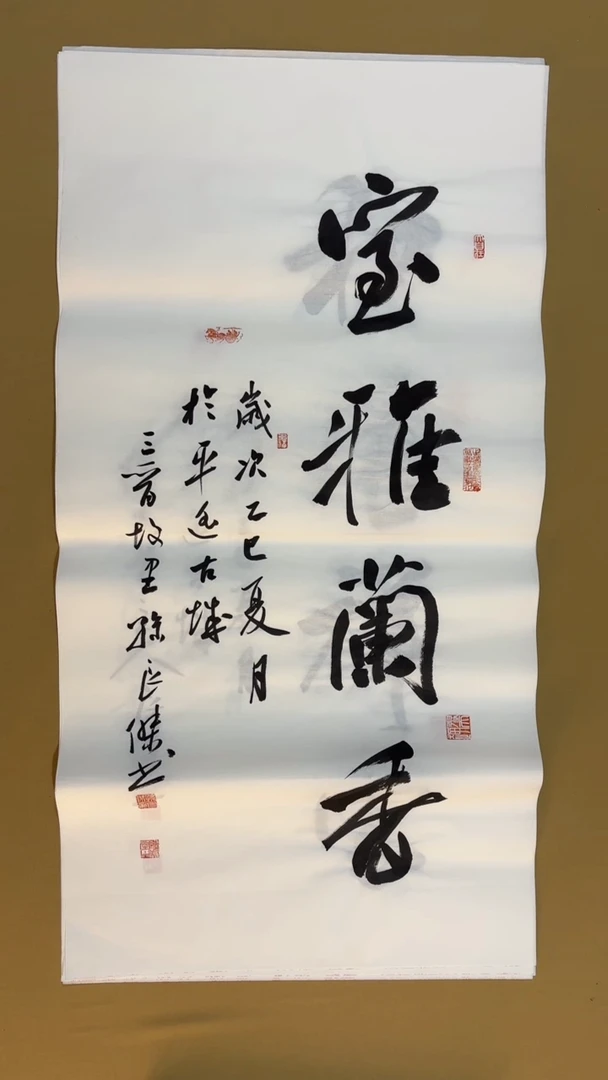 室雅蘭香
歲次乙巳夏月
於平遥古城
三晋故里孫良傑书